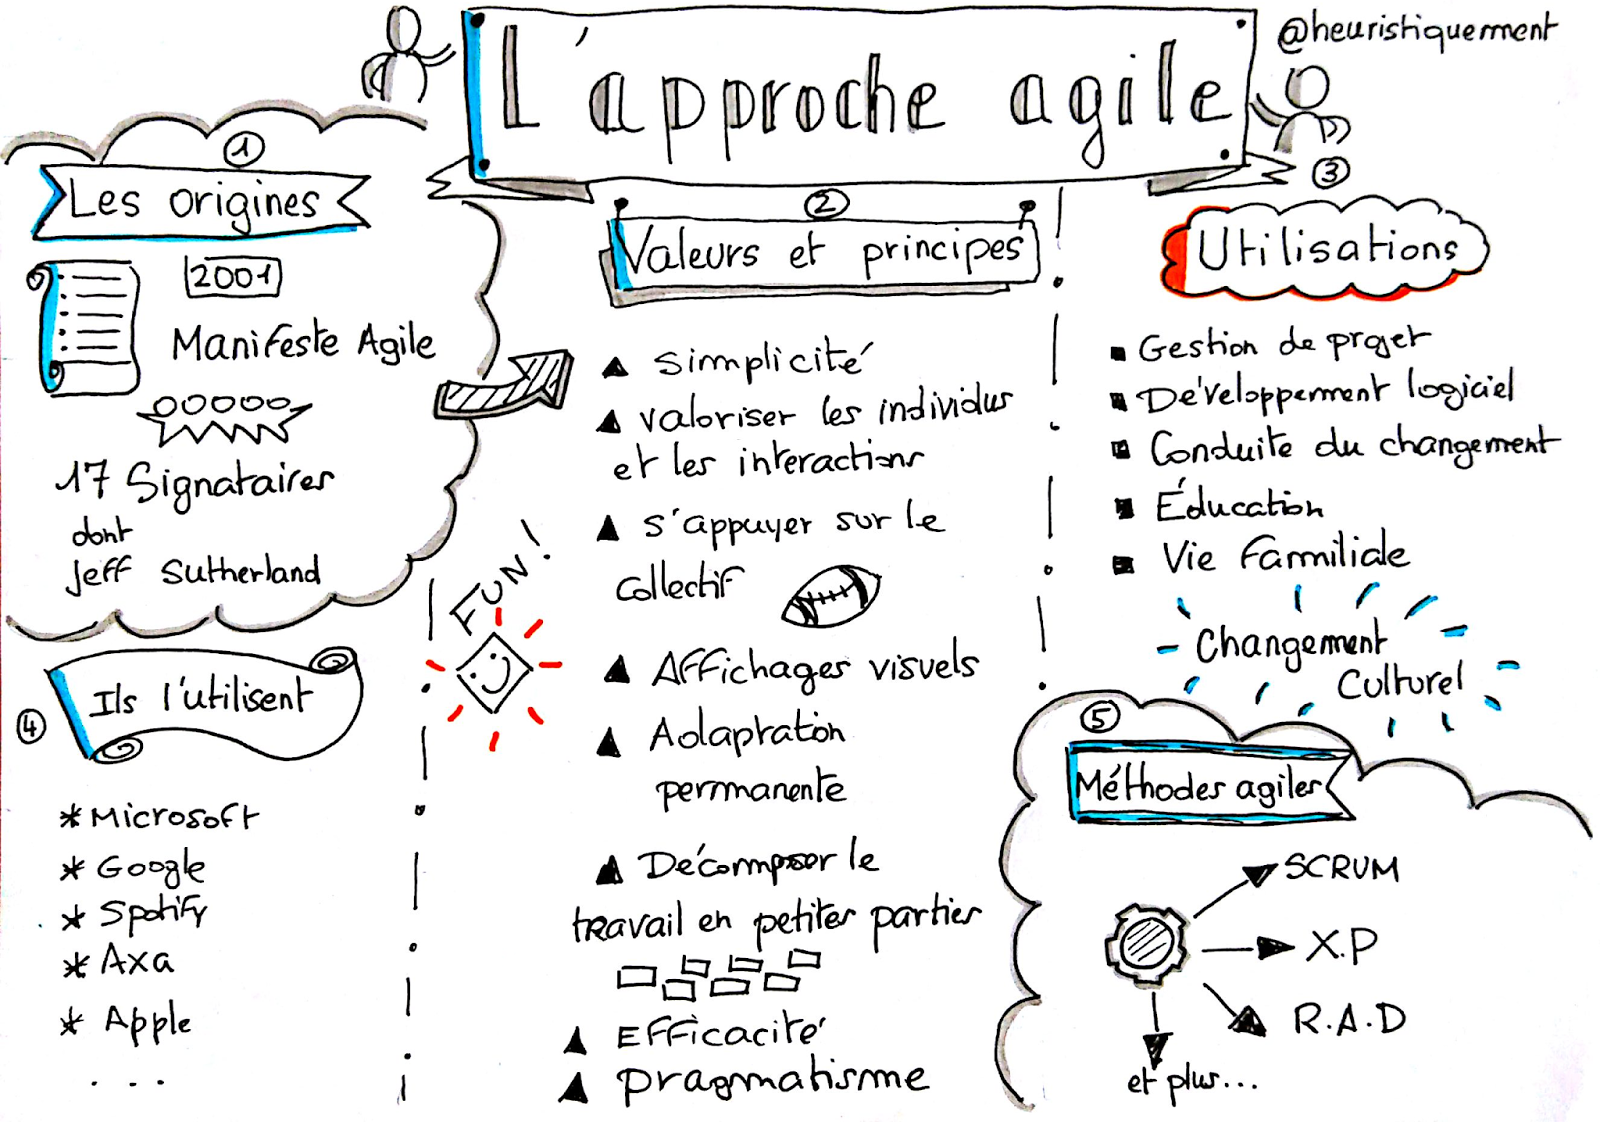 L'approche agile
@heuristiquement
1
Les origines
2001
Manifeste Agile
17 Signataires
dont
Jeff Sutherland
2
Valeurs et principes
Simplicité
valoriser les individus
et les interactions
s'appuyer sur le
collectif
Affichages visuels
Adaptation
permanente
Décomposer le
travail en petites parties
Efficacité
pragmatisme
FUN!
3
Utilisations
Gestion de projet
Développement logiciel
Conduite du changement
Éducation
Vie familiale
Changement
Culturel
4
Ils l'utilisent
* Microsoft
* Google
* Spotify
* Axa
* Apple
...
5
Méthodes agiles
SCRUM
X.P
R.A.D
et plus...